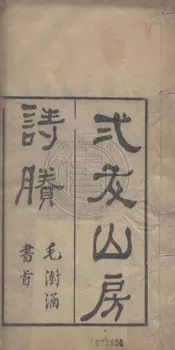 弍友山房
詩賸
毛澍涵
書首